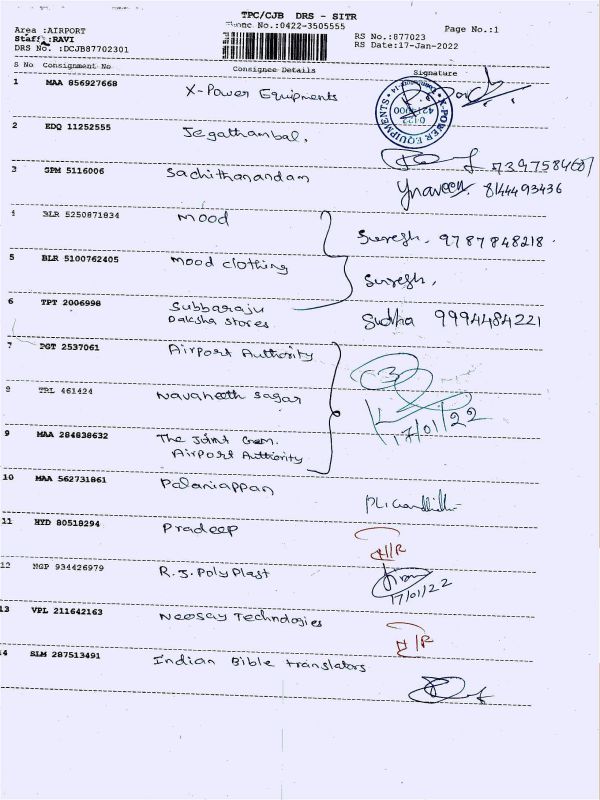 TPC/CJB DRS - SITR
Phone No.:0422-3505555
Area :AIRPORT
Staff :RAVI
DRS No. :DCJB87702301
RS No.:877023
RS Date:17-Jan-2022
Page No.:1
S No Consignment No Consignee Details Signature
1 MAA 856927668 X-Power Equipments
X-POWER EQUIPMENTS
2 EDQ 11252555 Jegathambal,
3 GPM 5116006 Sachithanandam 7397584687
Ynaveen. 8144493436
4 BLR 5250871834 Mood Suresh. 9787848218.
5 BLR 5100762405 Mood clothing Suresh,
6 TPT 2006998 Subbaraju
Daksha stores. Sudha 9994484221
7 PGT 2537061 Airport Authority
3
8 TRL 461424 Navaneeth sagar
17/01/22
9 MAA 284838632 The Joint Gem.
Airport Authority
10 MAA 562731861 Palaniappan
11 HYD 80518294 Pradeep
12 NGP 934426979 R.J. Poly Plast
17/01/22
13 VPL 211642163 Neosay Technologies
14 SLM 287513491 Indian Bible translators